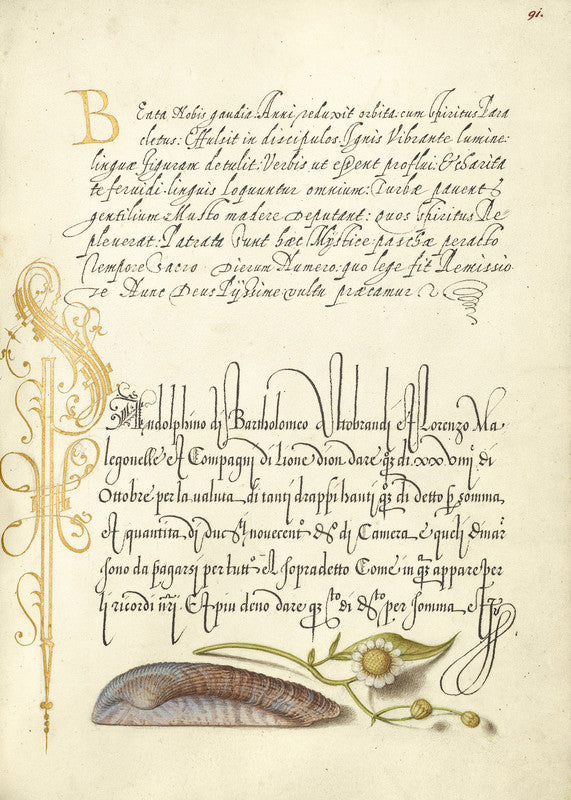 91.
BEata Nobis gaudia Anni reduxit orbita: cum Spiritus Para
cletus: Effulsit in discipulos. Ignis Vibrante lumine:
linguæ figuram detulit: Verbis ut essent proflui: & charita
te fervidi. linguis loquuntur omnium: Turbæ pavent
gentilium Musto madere Deputant: quos Spiritus Re
pleverat: Patrata Sunt hæc Mystice paschæ peracto
Tempore Sacro Dierum Numero: quo lege fit Remissio
Nunc Deus Pijssime vultu præcamur
Andolphino di Bartholomeo Altobrandi et Lorenzo Ma
legonelle et Compagni di Lione dion dare di xx di
Ottobre per la valuta di tanti drappi hauti di detto somma
et quantita di novecento di Camera e queli
sono da pagarsi per tutto el sopradetto Come in appare per
li ricordi Et piu deno dare di per somma